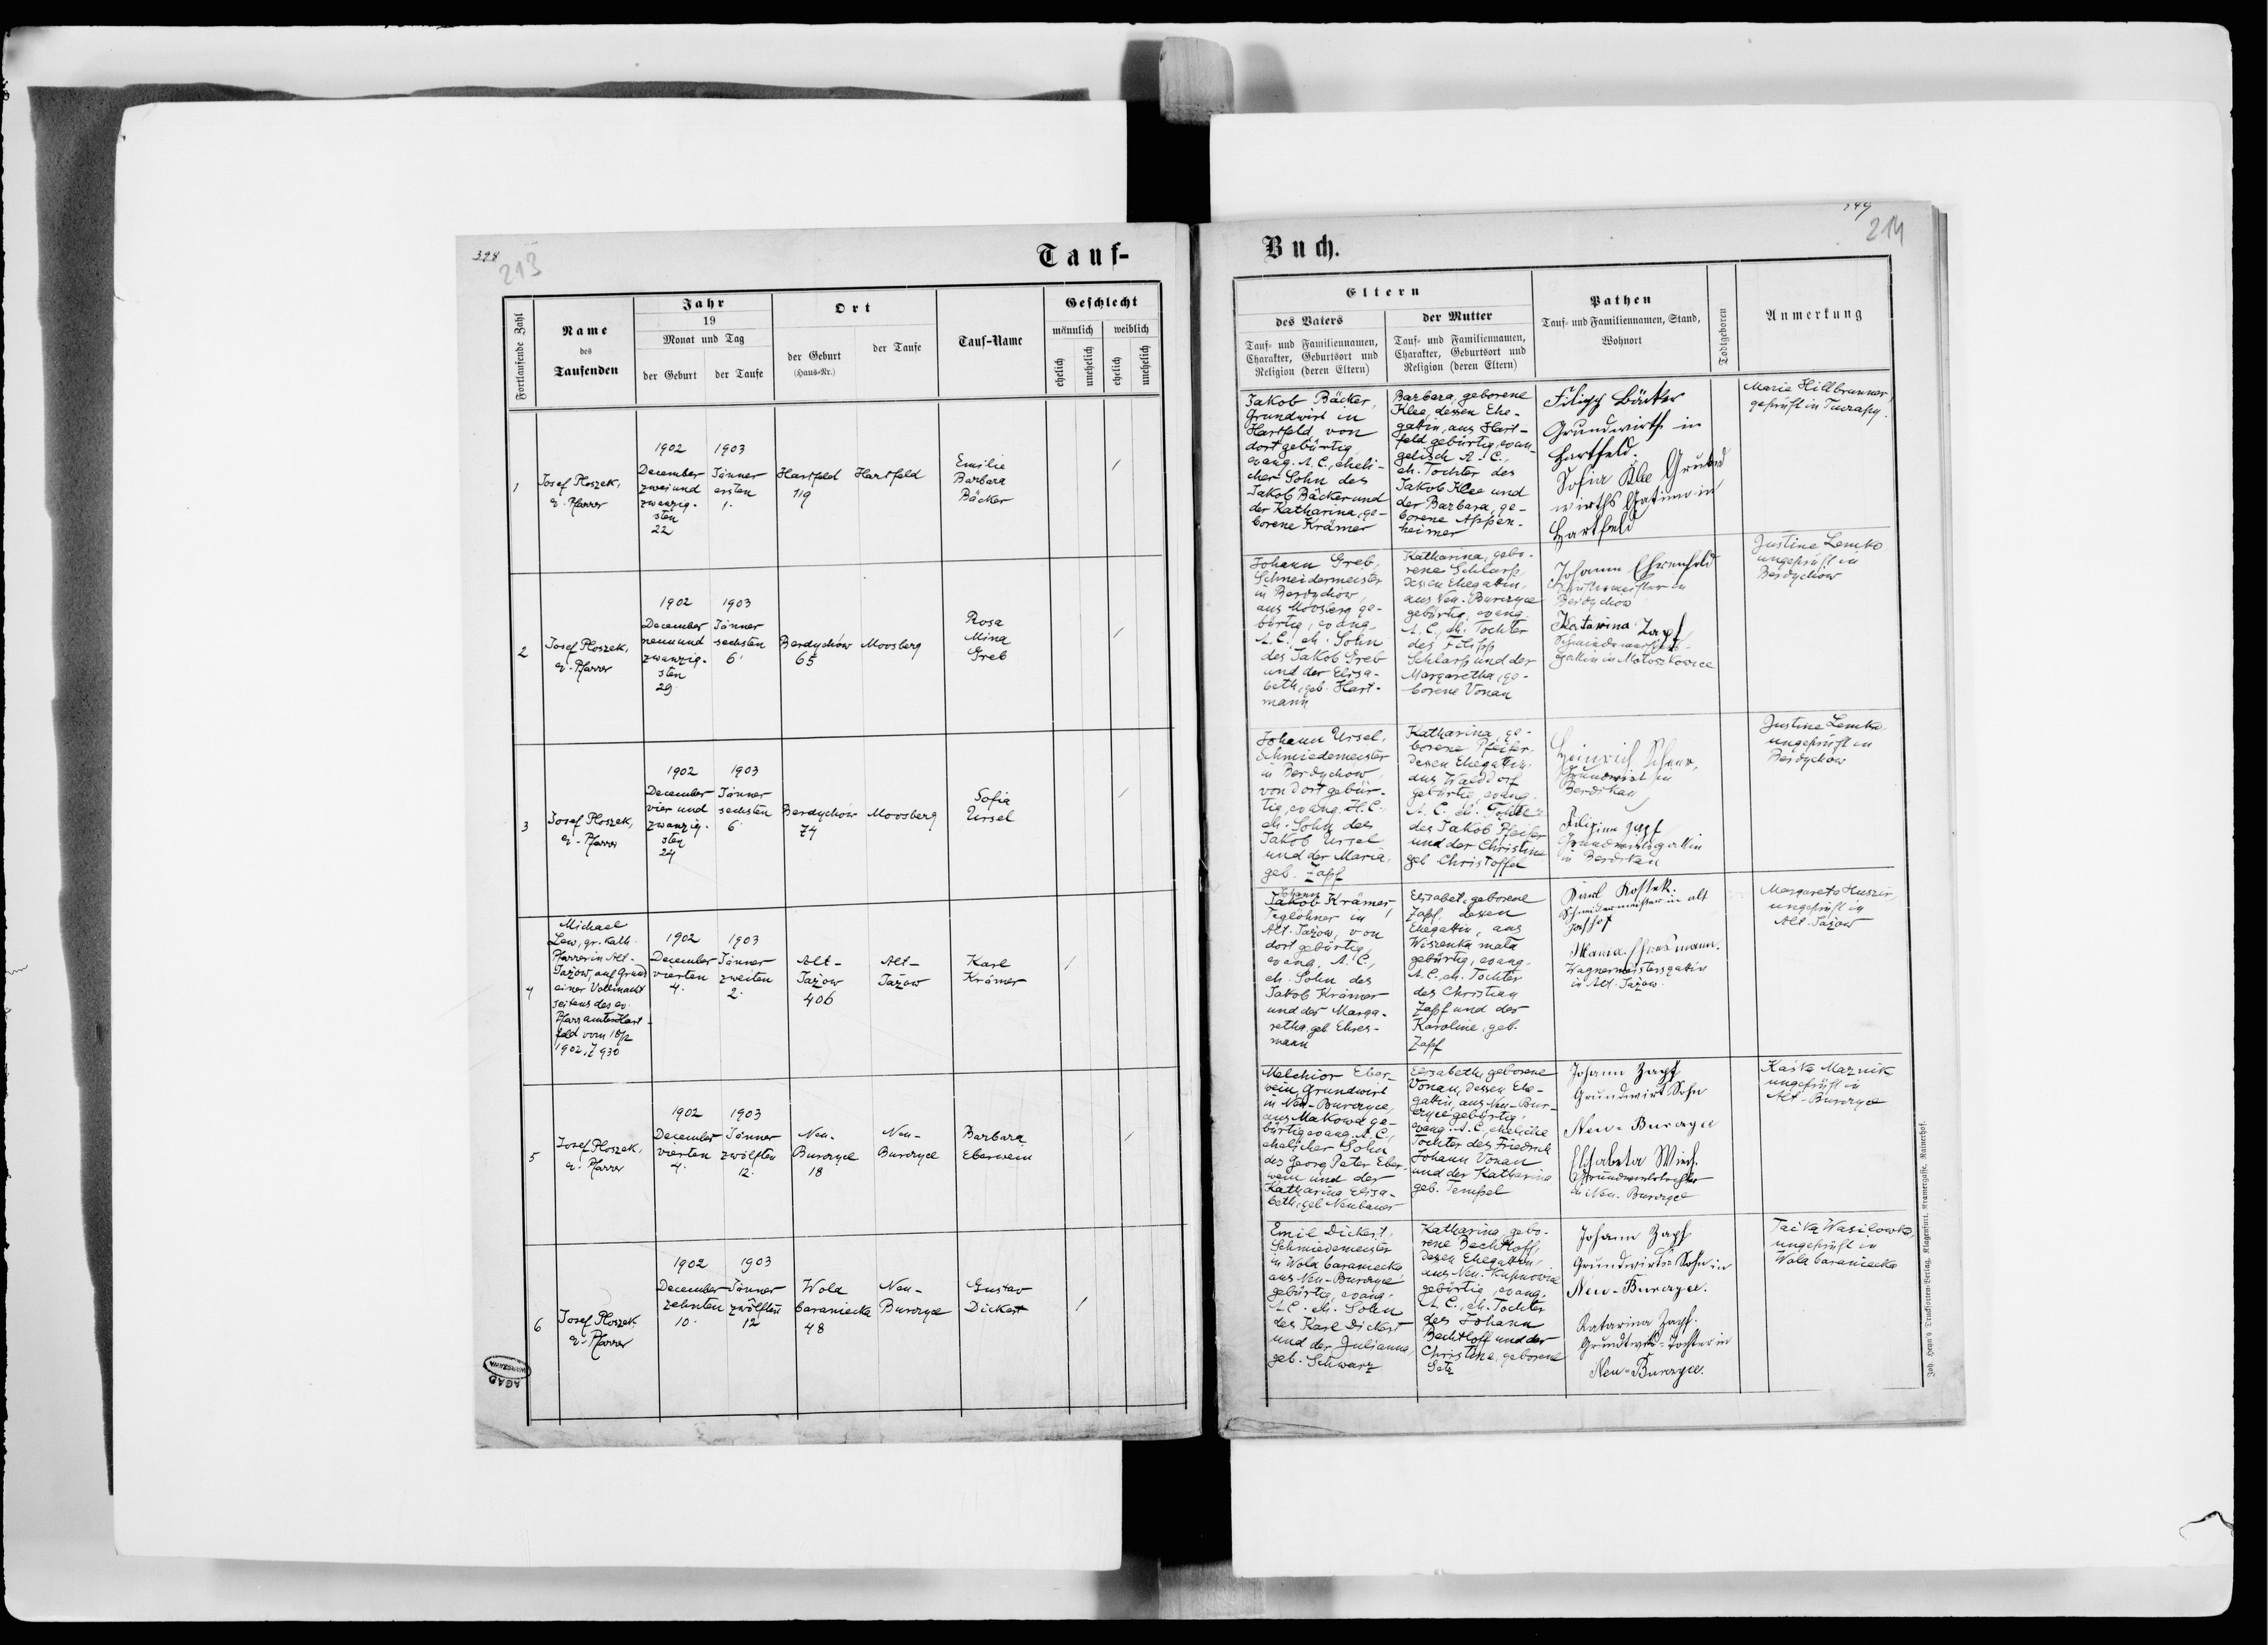 328
213
Tauf-
Fortlaufende Zahl
Name
des
Taufenden
Jahr
19
Monat und Tag
der Geburt
der Taufe
Ort
der Geburt
(Haus-Nr.)
der Taufe
Tauf-Name
Geschlecht
männlich
weiblich
ehelich
unehelich
ehelich
unehelich
1
Josef Ploszek,
ev. Pfarrer
1902
December
zwei und
zwanzig-
sten
22
1903
Jänner
ersten
1.
Hartfeld
119
Hartfeld
Emilie
Barbara
Bäcker
/
2
Josef Ploszek,
ev. Pfarrer
1902
December
neun und
zwanzig-
sten
29.
1903
Jänner
sechsten
6.
Berdychów
65
Moosberg
Rosa
Mina
Greb
/
3
Josef Ploszek,
ev. Pfarrer
1902
December
vier und
zwanzig-
sten
24
1903
Jänner
sechsten
6
Berdychów
74
Moosberg
Sofia
Ursel
/
4
Michael
Lew, gr. kath.
Pfarrer in Alt-
Jażow, auf Grund
einer Vollmacht
seitens des ev.
Pfarramtes Hart-
feld vom 18/12
1902, Z 930
1902
December
vierten
4.
1903
Jänner
zweiten
2.
Alt-
Jażow
406
Alt-
Jażow
Karl
Krämer
/
5
Josef Ploszek,
ev. Pfarrer
1902
December
vierten
4.
1903
Jänner
zwölften
12.
Neu-
Burczyce
18
Neu-
Burczyce
Barbara
Eberwein
/
6
Josef Ploszek,
ev. Pfarrer
1902
December
zehnten
10.
1903
Jänner
zwölften
12
Wola
baraniecka
48
Neu-
Burczyce
Gustav
Dickert
/
AGAD
WARSZAWA
214
Buch.
Eltern
des Vaters
Tauf- und Familiennamen,
Charakter, Geburtsort und
Religion (deren Eltern)
der Mutter
Tauf- und Familiennamen,
Charakter, Geburtsort und
Religion (deren Eltern)
Pathen
Tauf- und Familiennamen, Stand,
Wohnort
Todtgeboren
Anmerkung
Jakob Bäcker,
Grundwirt in
Hartfeld, von
dort gebürtig,
evang. A. C., eheli-
cher Sohn des
Jakob Bäcker und
der Katharina, ge-
borene Krämer
Barbara, geborene
Klee, dessen Ehe-
gattin, aus Hart-
feld gebürtig, evan-
gelisch A. C.,
eh. Tochter des
Jakob Klee und
der Barbara, ge-
borene Appen-
heimer
Filipp Bäcker
Grundwirth in
Hartfeld.
Sofia Klee Grund
wirths Gatinn in
Hartfeld
Marie Hillbrunner,
geprüft in
Johann Greb,
Schneidermeister
in Berdychów,
aus Moosberg ge-
bürtig, evang.
A. C., eh. Sohn
des Jakob Greb
und der Elisa-
beth, geb. Hart-
mann
Katharina, gebo-
rene Schlarp,
dessen Ehegattin,
aus Neu-Burczyce
gebürtig, evang.
A. C., eh. Tochter
des Filipp
Schlarp und der
Margaretha, ge-
borene Vonau
Johann Ehrenfeld
in
Berdychow
Katarina Zapf
Schmiedemeisters-
gattin in Mołoszkowice
Justine Lemko
ungeprüft in
Berdychów
Johann Ursel,
Schmiedemeister
in Berdychow,
von dort gebür-
tig, evang. H. C.,
eh. Sohn des
Jakob Ursel
und der Maria,
geb. Zapf
Katharina, ge-
borene Pfeifer,
dessen Ehegattin,
aus Walddorf
gebürtig, evang.
A. C. eh. Tochter
des Jakob Pfeifer
und der Christine
geb. Christoffel
Heinrich
Grundwirt in
Berdikau
Filipina Zapf
Grundwirtsgattin
in Berdikau
Justine Lemko
ungeprüft in
Berdychów
Johann
Jakob Krämer,
Taglöhner in
Alt-Jażow, von
dort gebürtig,
evang. A. C.,
eh. Sohn des
Jakob Krämer
und der Marga-
retha, geb. Ehres-
mann
Elisabet, geborene
Zapf, dessen
Ehegattin, aus
Wiszenka mała
gebürtig, evang.
A. C., eh. Tochter
des Christian
Zapf und der
Karoline, geb.
Zapf
Karl Kostek.
Schneidermeister in alt
Maria Ehresmann.
Wagnermeistersgattin
in Alt. Jażow.
Margareta Huszir,
ungeprüft in
Alt-Jażow
Melchior Eber-
wein, Grundwirt
in Neu-Burczyce,
aus Makowa ge-
bürtig evang. A. C.,
ehelicher Sohn
des Georg Peter Eber-
wein und der
Katharina Elisa-
beth, geb. Neubauer
Elisabeth, geborene
Vonau, dessen Ehe-
gattin, aus Neu-Bur-
czyce gebürtig,
evang. A. C. eheliche
Tochter des Friedrich
Johann Vonau
und der Katharina
geb. Tempel
Johann Zapf
Grundwirt Sohn
Neu-Burczyce
Elisabeta
Grundwirtstochter
in Neu. Burczyce
Kaśka Maznik
ungeprüft in
Alt-Burczyce
Emil Dickert,
Schmiedemeister
in Wola baraniecka
aus Neu-Burczyce
gebürtig, evang.
A. C. eh. Sohn
des Karl Dickert
und der Julianna,
geb. Schwarz
Katharina, gebo-
rene Bechtloff,
dessen Ehegattin,
aus Neu-Kupnowice
gebürtig, evang.
A. C., eh. Tochter
des Johann
Bechtloff und der
Christine, geborene
Getz
Johann Zapf
Grundwirts-Sohn in
Neu-Burczyce.
Katarina Zapf.
Grundtwirts-Tochter in
Neu-Burczyce.
Wasilowka,
ungeprüft in
Wola baraniecka
Joh. Heyn's Druckforten-Verlag, Klagenfurt, Kramergasse, Rainerhof.